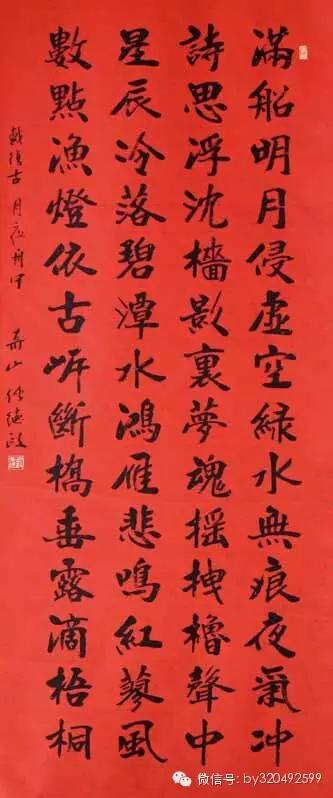 滿船明月侵虛空緑水無痕夜氣沖
詩思浮沈檣影裏夢魂摇拽櫓聲中
星辰冷落碧潭水鴻雁悲鳴紅蓼風
數點漁燈依古岸斷橋垂露滴梧桐
戴復古月夜舟中
微信号: by320492599